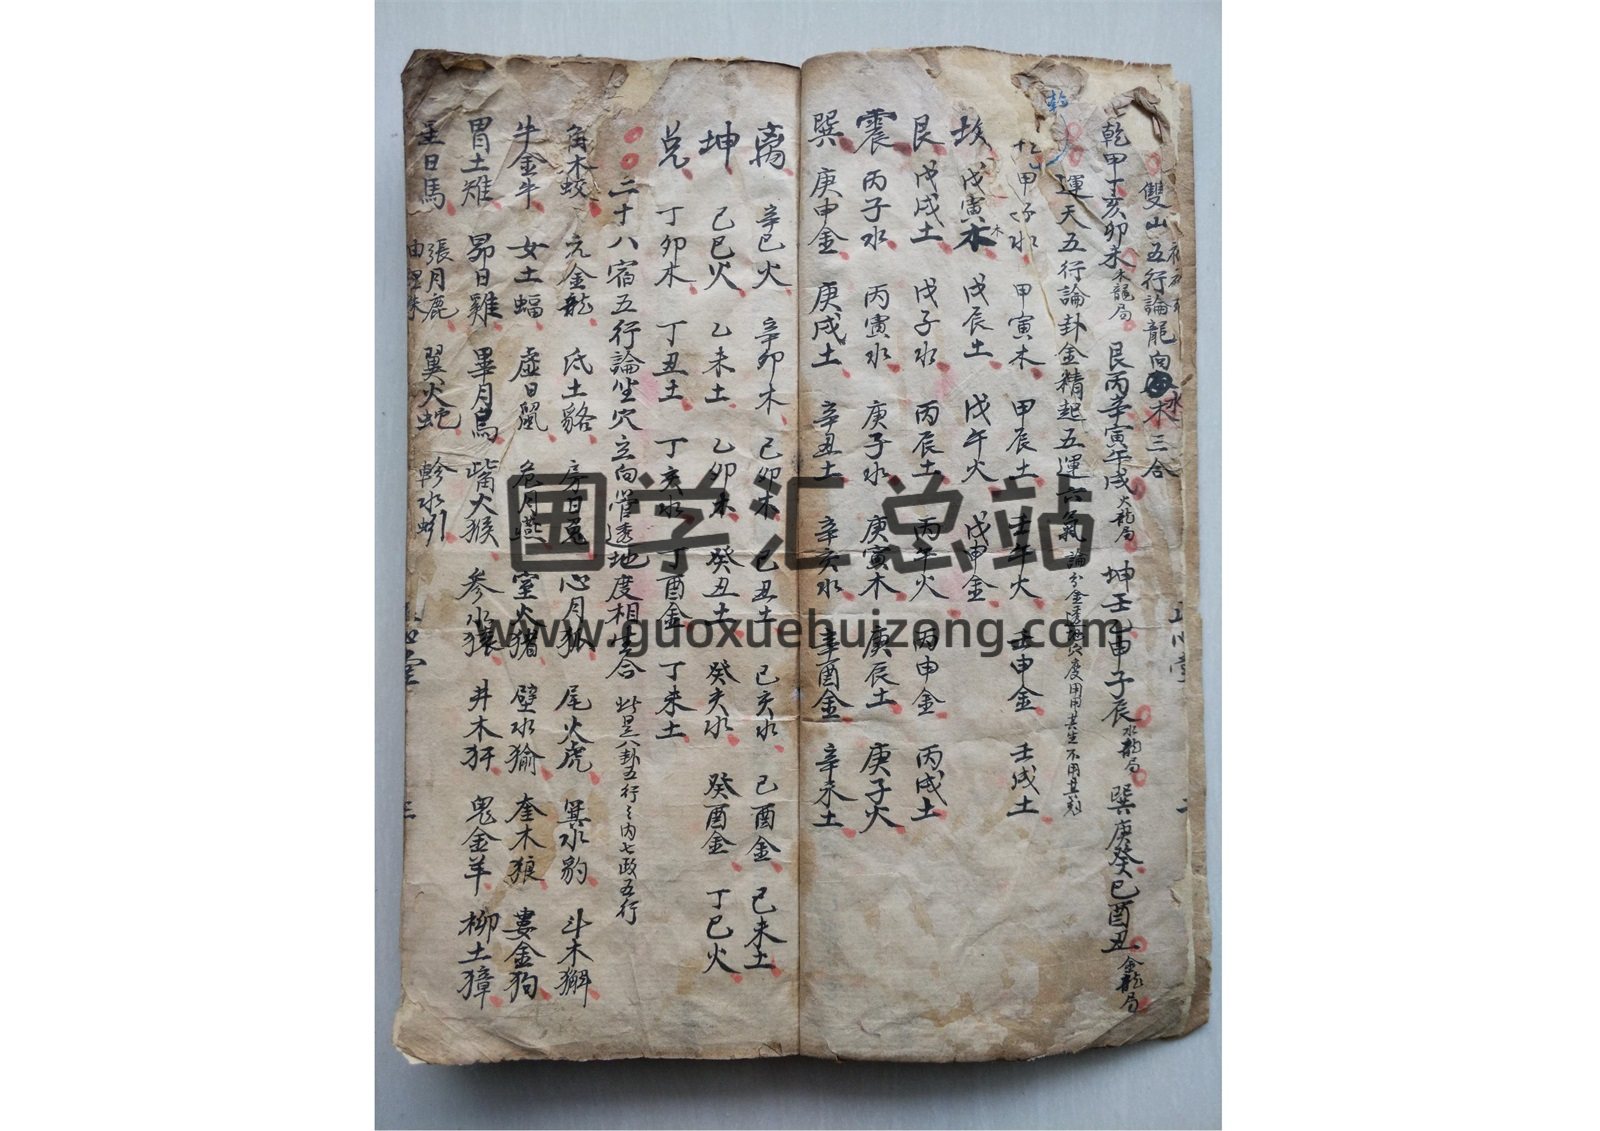 雙山五行論龍向水木三合
乾甲丁亥卯未木龍局 艮丙辛寅午戌火龍局 坤壬乙申子辰水龍局 巽庚癸巳酉丑金龍局
乾
運天五行論卦金精起五運六氣 論分金透地穴度用用其生不用其剋
甲子水 甲寅木 甲辰土 壬午火 壬申金 壬戌土
坎 戊寅木 木 戊辰土 戊午火 戊申金
艮 戊戌土 戊子水 丙辰土 丙午火 丙申金 丙戌土
震 丙子水 丙寅水 庚子水 庚寅木 庚辰土 庚子火
巽 庚申金 庚戌土 辛丑土 辛亥水 辛酉金 辛未土
離 辛巳火 辛卯木 己卯木 己丑土 己亥水 己酉金 己未土
坤 己巳火 乙未土 乙卯木 癸丑土 癸亥水 癸酉金 丁巳火
兌 丁卯木 丁丑土 丁亥水 丁酉金 丁未土
二十八宿五行論坐穴立向管透地度相生合 此是八卦五行之内七政五行
角木蛟 亢金龍 氐土貉 房日兔 心月狐 尾火虎 箕水豹 斗木獬
牛金牛 女土蝠 虛日鼠 危月燕 室火豬 壁水㺄 奎木狼 婁金狗
胃土雉 昴日雞 畢月烏 觜火猴 参水猿 井木犴 鬼金羊 柳土獐
日馬 張月鹿 翼火蛇 軫水蚓
国学汇总站
www.guoxuehuizong.com